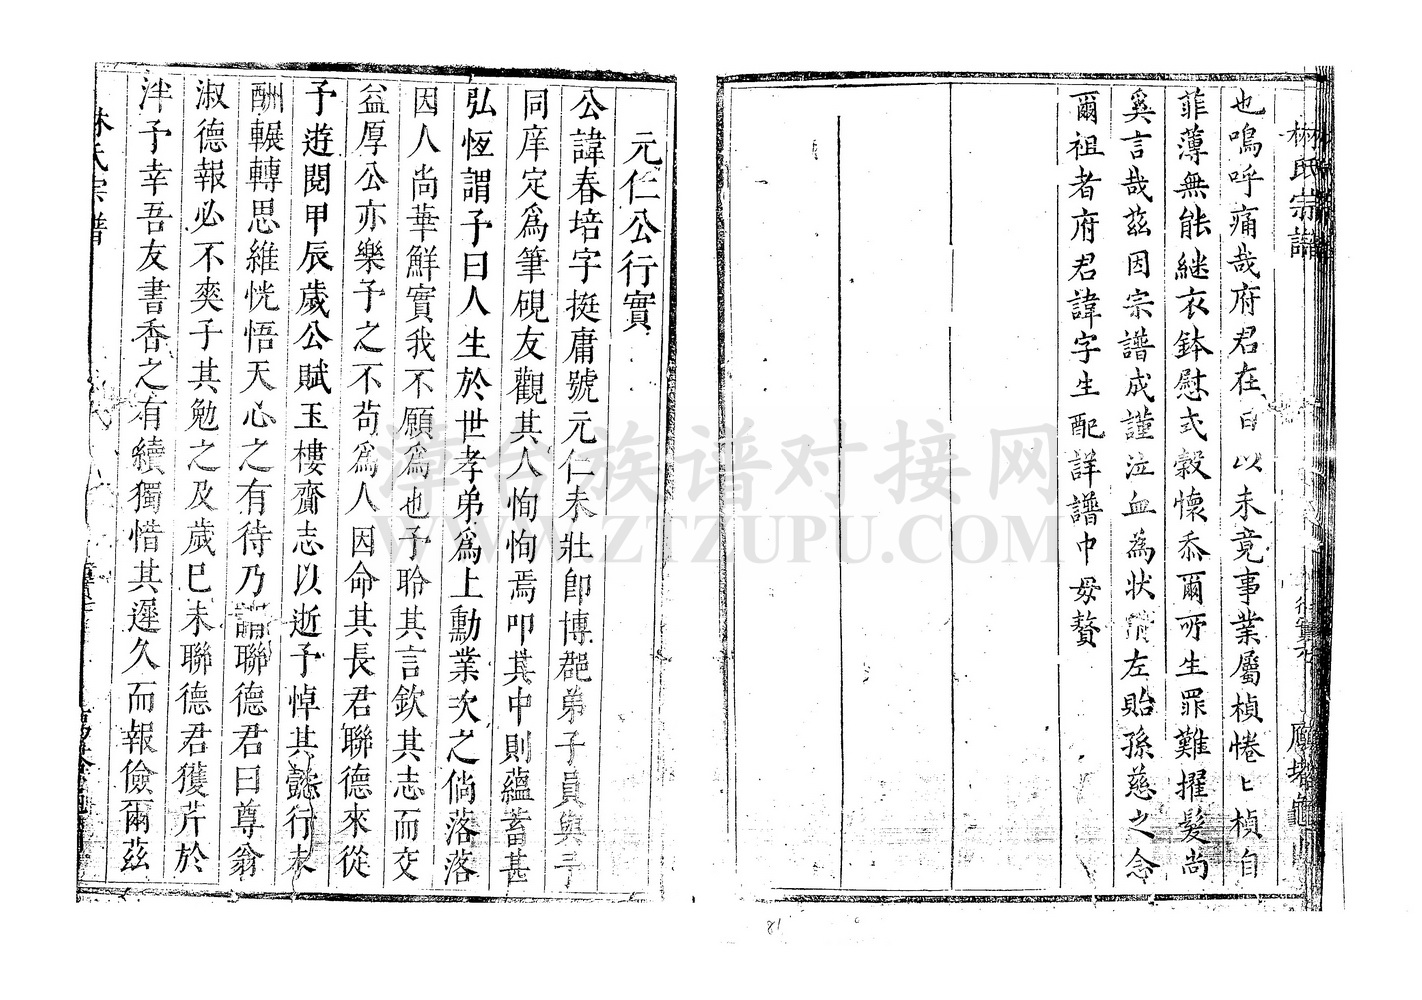 林氏宗譜
也嗚呼痛哉府君在日以未竟事業屬楨惓匕楨自
菲薄無能継衣鉢慰式穀懷忝爾所生罪難擢髮尚
奚言哉茲因宗譜成謹泣血為狀 左貽孫慈之念
爾祖者府君諱字生配詳譜中毋贅
元仁公行實
公諱春培字挺庸號元仁未壯卽博郡弟子員與予
同庠定爲筆硯友觀其人恂恂焉叩其中則蘊蓄甚
弘恆謂予曰人生於世孝弟爲上勳業次之倘落落
因人尚華鮮實我不願爲也予聆其言欽其志而交
益厚公亦樂予之不苟爲人因命其長君聯德來從
予遊閱甲辰歲公賦玉樓齎志以逝予悼其懿行未
酬輾轉思維恍悟天心之有待乃 聯德君曰尊翁
淑德報必不爽子其勉之及歲巳未聯德君獲芹於
泮予幸吾友書香之有續獨惜其遲久而報儉爾茲
林氏宗譜
漳台族谱对接网
WWW.ZTZUPU.COM
81